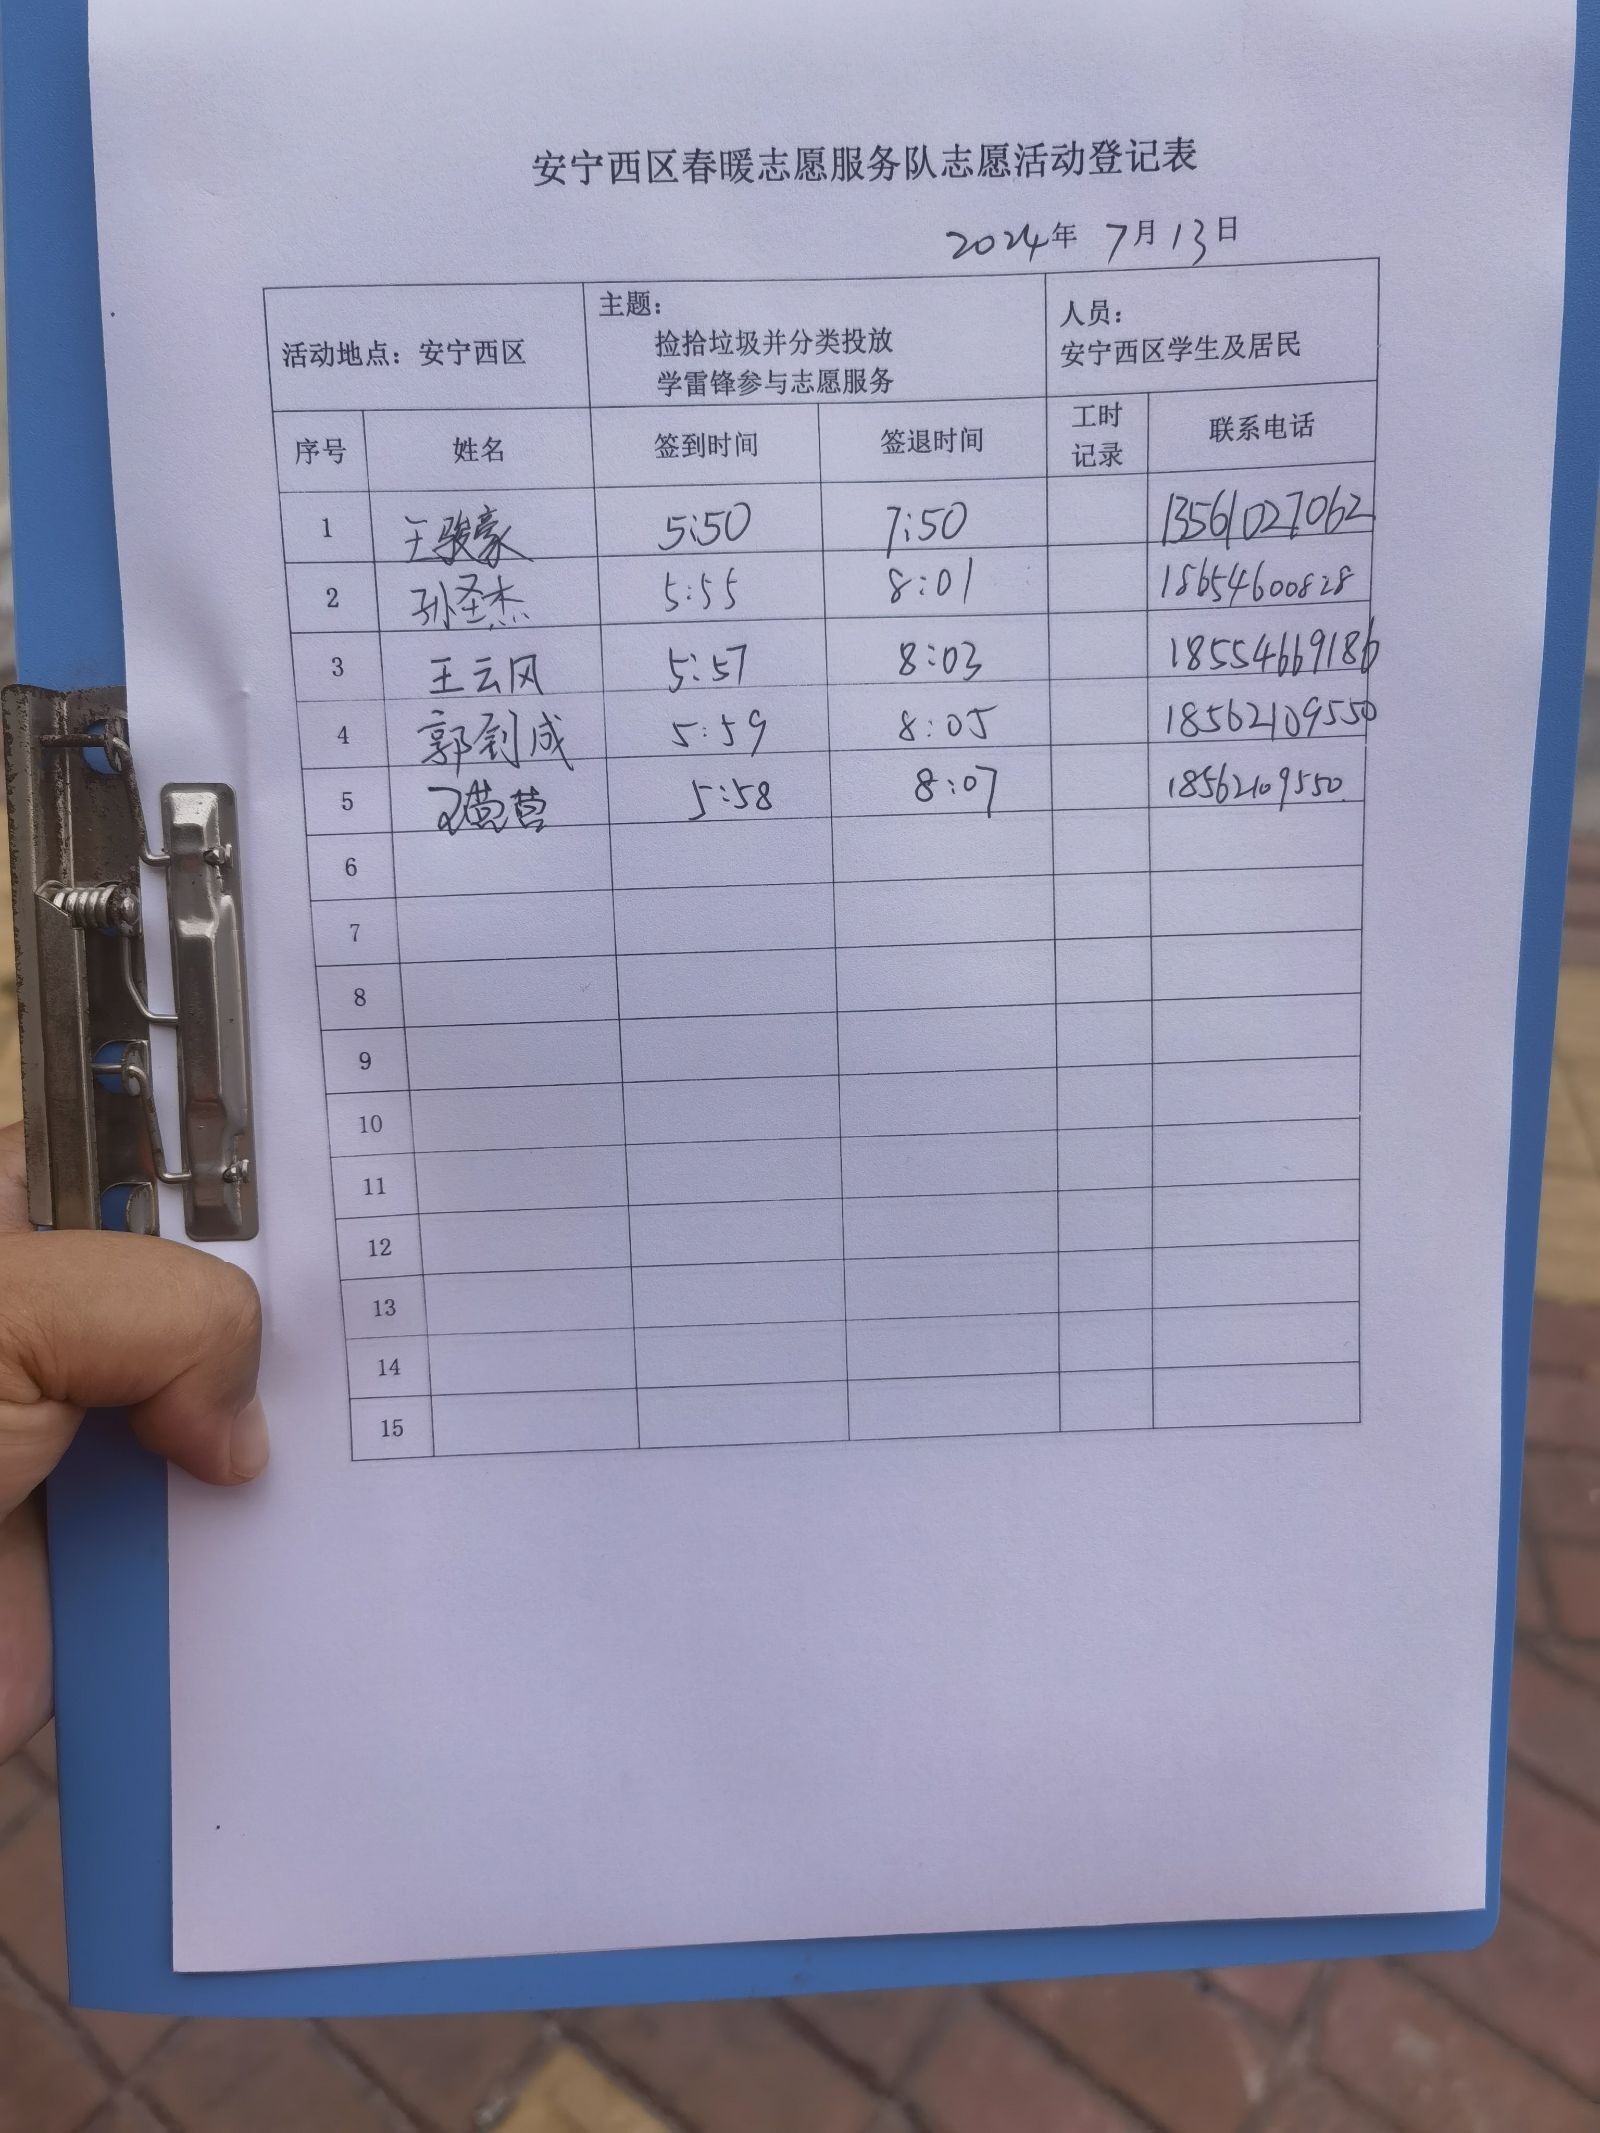 安宁西区春暖志愿服务队志愿活动登记表
2024年 7月13日
活动地点：安宁西区
主题：
捡拾垃圾并分类投放
学雷锋参与志愿服务
人员：
安宁西区学生及居民
序号 姓名 签到时间 签退时间 工时记录 联系电话
1 王骏豪 5:50 7:50 13561027062
2 孙圣杰 5:55 8:01 18654600828
3 王云风 5:57 8:03 18554669186
4 郭 成 5:59 8:05 18562109550
5 5:58 8:07 18562109550
6
7
8
9
10
11
12
13
14
15